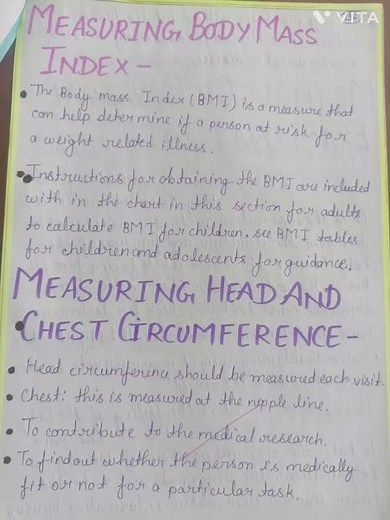 VITA
MEASURING BODY MASS
INDEX -
• The Body mass Index (BMI) is a measure that
can help determine if a person at risk for
a weight related illness.
• Instructions for obtaining the BMI are included
with in the chart in this section for adults
to calculate BMI for children. see BMI tables
for children and adolescents for guidance.
MEASURING HEAD AND
• CHEST CIRCUMFERENCE -
• Head circumference should be measured each visit.
• Chest: this is measured at the nipple line.
• To contribute to the medical research.
• To findout whether the person is medically
fit or not for a particular task.